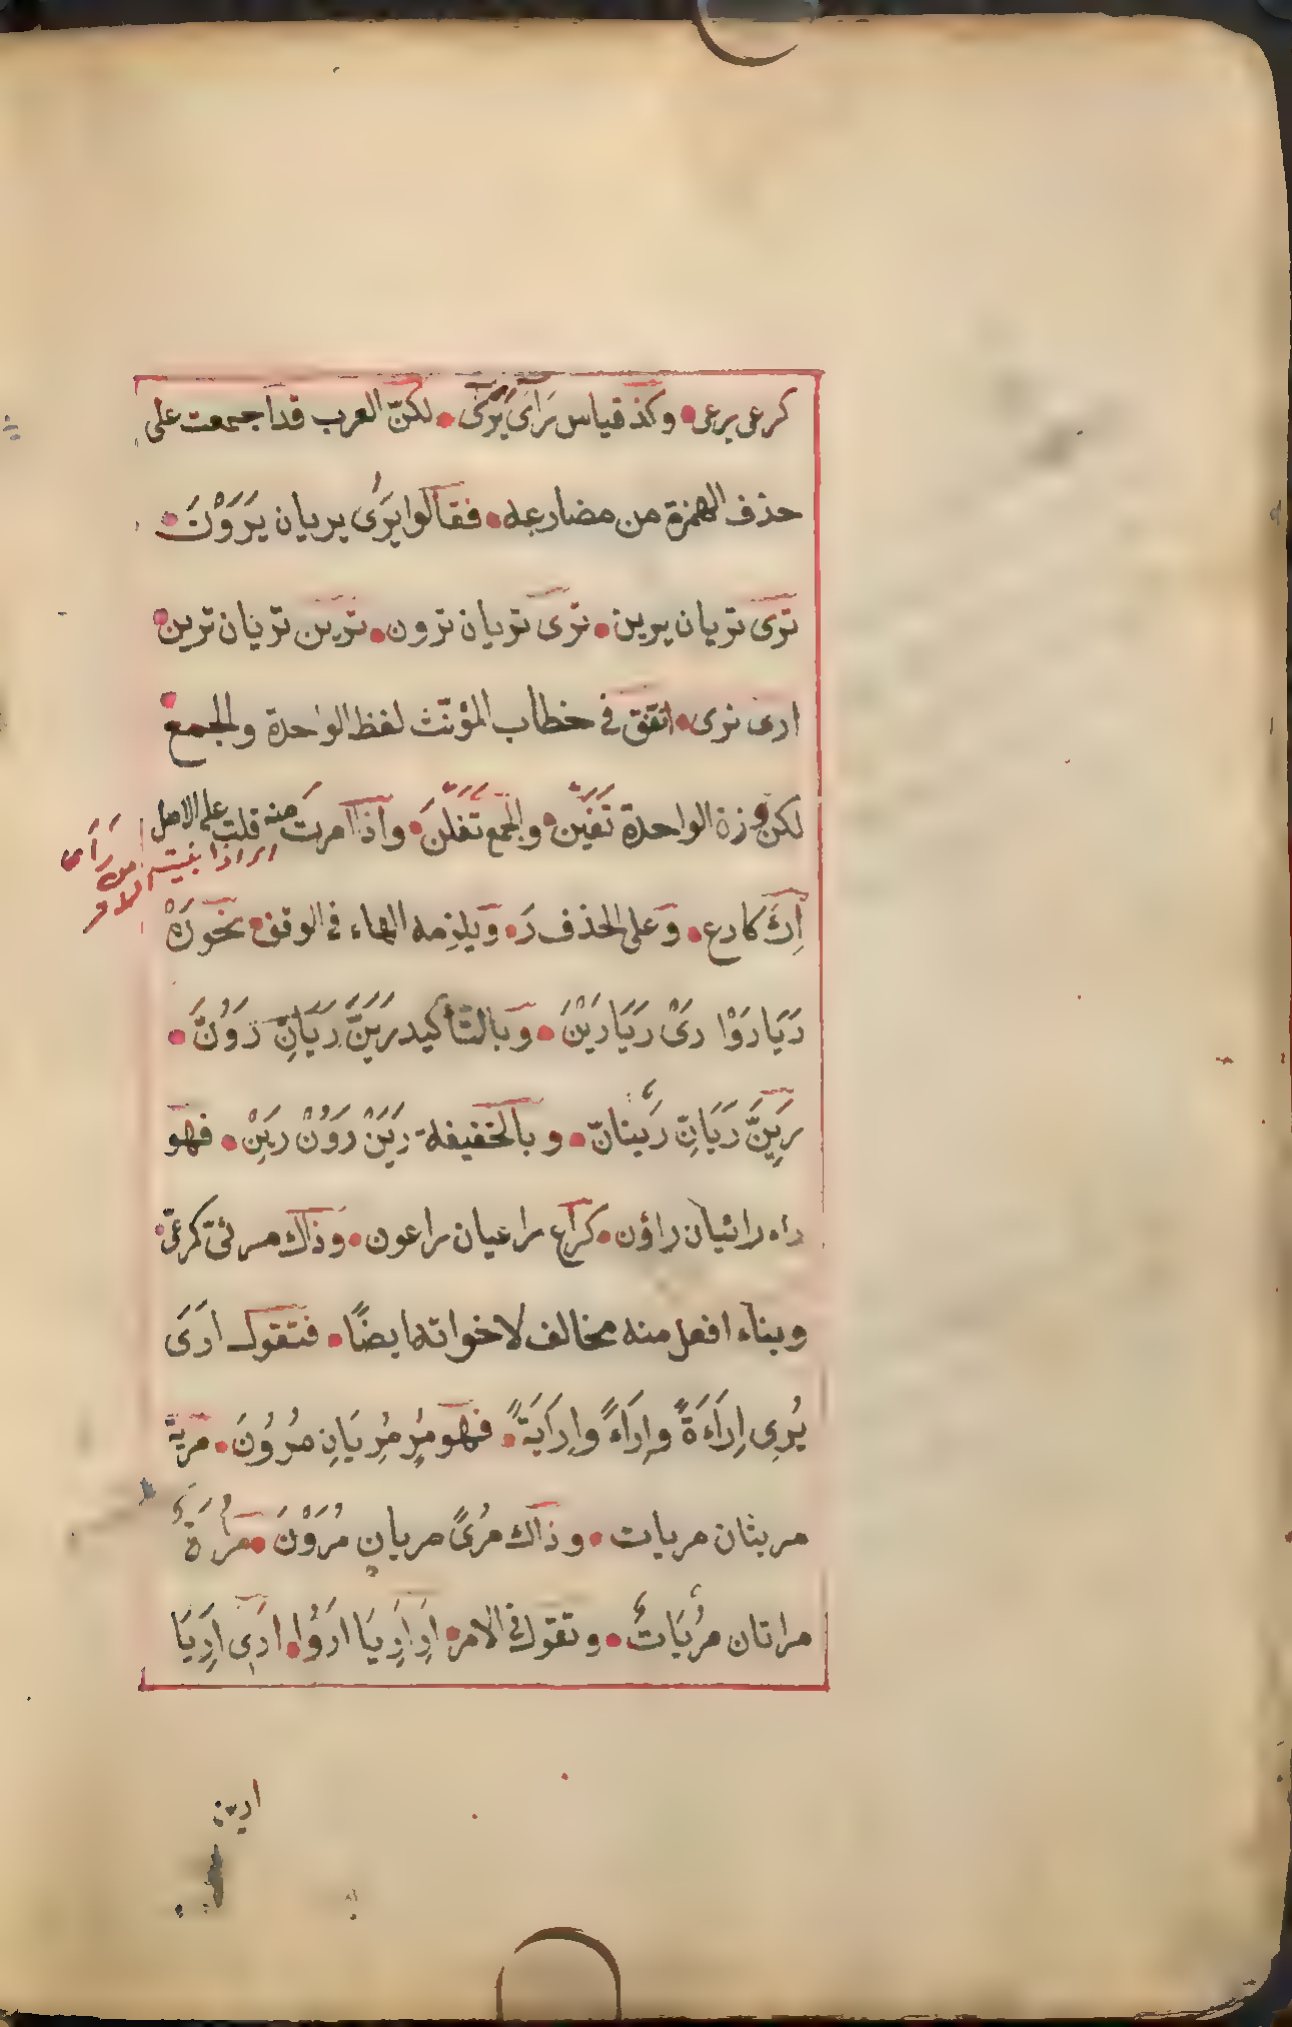 كرعى يرعى وكذ قياس رَأى يَرْأى لكنّ العرب قد اجمعت على
حذف الهمزة من مضارعه فقالوا يَرَى يريان يَرَوْنَ
ترى تريان يرين ترى تريان ترون ترين تريان ترين
ارى نرى اتفق في خطاب المؤنّث لفظ الواحدة والجمع
لكن وزة الواحدة تَفَيْن والجمع تَفَلْنَ واذا امرتَ منه قلت على الاصل
اى اذا بنيت
الامر
من رَأَى
اِرْءَ كارع وعلى الحذف رَ ويلزمه الهاء في الوقف نحو رَهْ
رَيَا رَوْا رىْ رَيَا رَيْنَ وبالتّأكيد رَيَنَّ رَيَانِّ رَوُنَّ
رَيِنَّ رَيَانِّ رَيْنانّ وبالخفيفة رَيَنْ رَوُنْ رَيِنْ فهو
راء رائيان راؤن كراع راعيان راعون وذاك مرئىّ كمرعىّ
وبناء افعل منه مخالف لاخواته ايضًا فتقول ارَى
يُرِى اِرَاءَةً واِرَاءً واِرَايَةً فهو مُرٍ مُرِيَانِ مُرُوُنَ مرية
مريتان مريات وذاك مُرىً مريان مُرَوْنَ مُرَاةٌ
مراتان مُرَيَاتٌ وتقول في الامر اَرِ اَرِيَا ارُوْا ارِى اَرِيَا
ارين